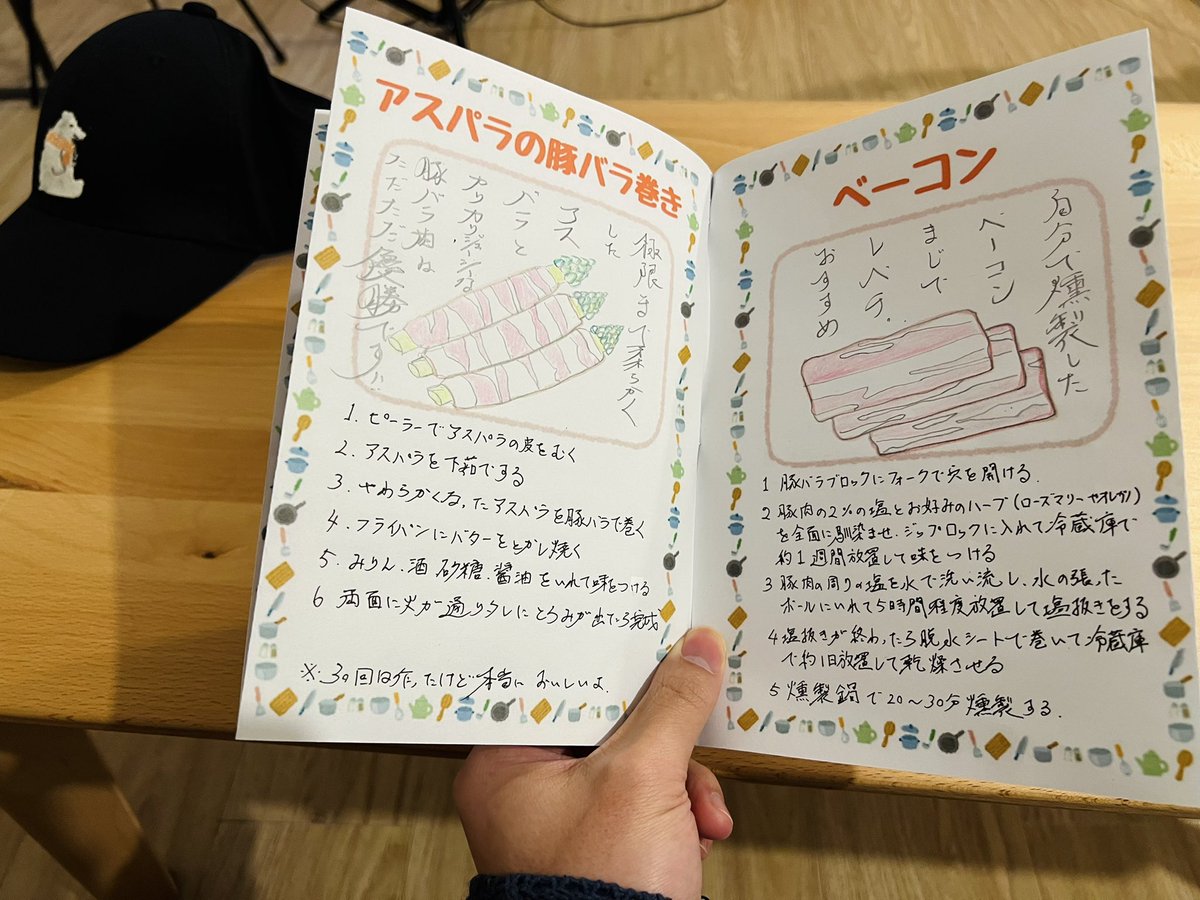 アスパラの豚バラ巻き
極限まで柔らかく
した
アス
パラと
カリカリジューシーな
豚バラ肉は
ただただ優勝です!!
1. ピーラーでアスパラの皮をむく
2. アスパラを下茹でする
3. やわらかくなったアスパラを豚バラで巻く
4. フライパンにバターをとかし焼く
5. みりん、酒 砂糖、醤油をいれて味をつける
6 両面に火が通りタレにとろみが出たら完成
※. 30回は作ったけど本当においしいよ.
ベーコン
自分で燻製した
ベーコン
まじで
レベチ。
おすすめ
1 豚バラブロックにフォークで穴を開ける.
2 豚肉の2%の塩とお好みのハーブ(ローズマリーやオレガノ)
を全面に馴染ませ、ジップロックに入れて冷蔵庫で
約1週間放置して味をつける
3 豚肉の周りの塩を水で洗い流し、水の張った
ボールにいれて5時間程度放置して塩抜きをする
4 塩抜きが終わったら脱水シートで巻いて冷蔵庫
で約1日放置して乾燥させる
5 燻製鍋で20〜30分燻製する.